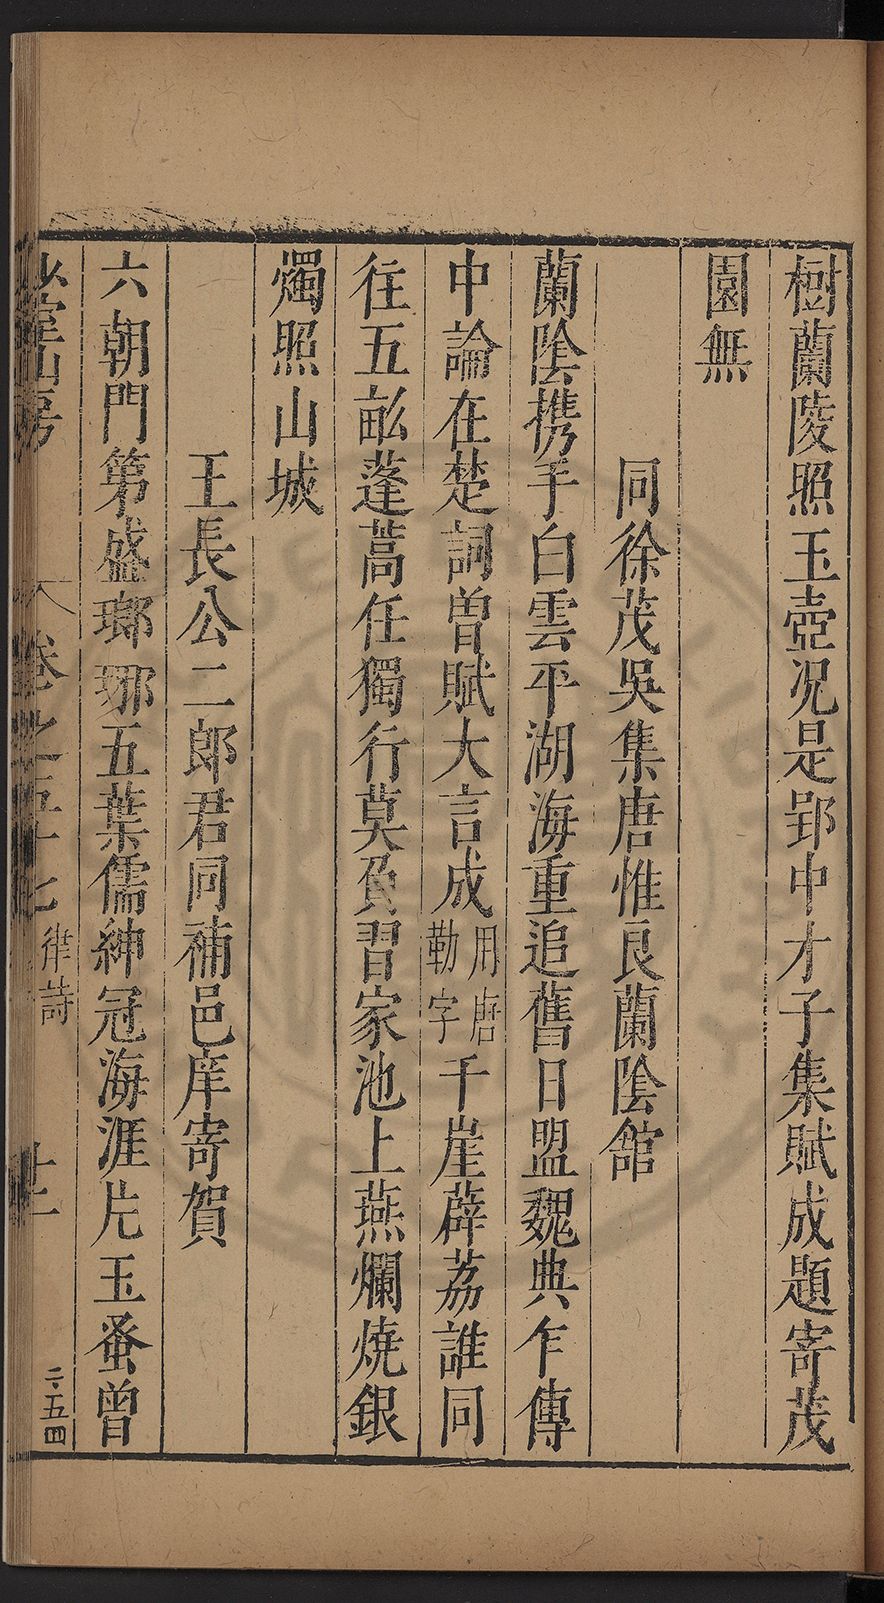 樹蘭陵照玉壺况是郢中才子集賦成題寄茂
園無
同徐茂吳集唐惟良蘭陰舘
蘭陰携手白雲平湖海重追舊日盟魏典乍傳
中論在楚詞曽賦大言成用唐勒字千崖薜荔誰同
往五畝蓬蒿任獨行莫負習家池上燕爛燒銀
燭照山城
王長公二郎君同補邑庠寄賀
六朝門第盛瑯琊五葉儒紳冠海涯片玉蚤曾
山房
卷之五十七
律詩
二·五四